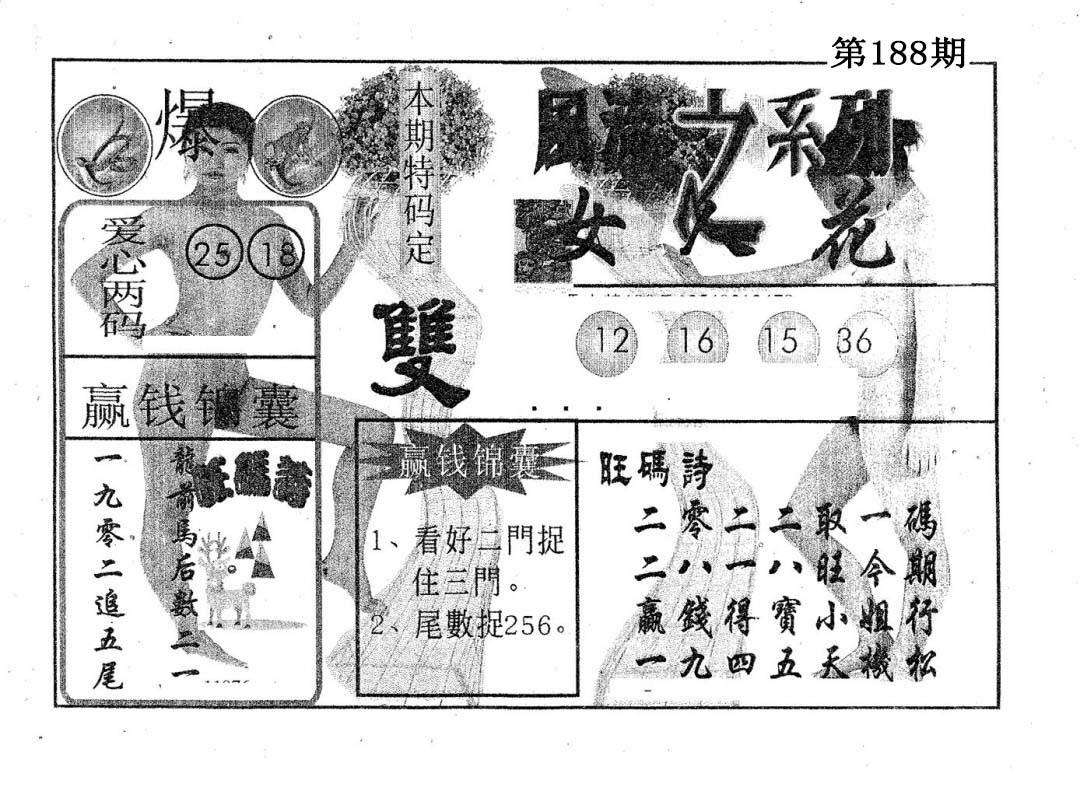 第188期
爆
本期特码定
雙
系列
女人花
爱心两码
25 18
12 16 15 36
赢钱锦囊
龍前馬后數二一
一九零二追五尾
赢钱锦囊
1、看好二門捉
住三門。
2、尾數捉256。
旺碼詩
二零二二取一碼
二八一八旺今期
贏錢得寶小姐行
一九四五天機松